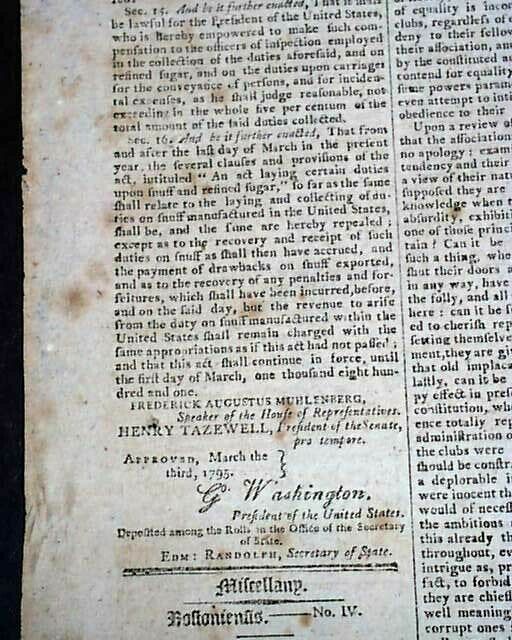 Sec. 15. And be it further enacted, That it shall
be lawful for the President of the United States,
who is hereby empowered to make such com-
pensation to the officers of inspection employed
in the collection of the duties aforesaid, and on
refined sugar, and on the duties upon carriages
for the conveyance of persons, and for inciden-
tal expenses, as he shall judge reasonable, not
exceeding in the whole five per centum of the
total amount of the said duties collected.
Sec. 16. And be it further enacted, That from
and after the last day of March in the present
year, the several clauses and provisions of the
act, intituled "An act laying certain duties
upon snuff and refined sugar," so far as the same
shall relate to the laying and collecting of du-
ties on snuff manufactured in the United States,
shall be, and the same are hereby repealed :
except as to the recovery and receipt of such
duties on snuff as shall then have accrued, and
the payment of drawbacks on snuff exported,
and as to the recovery of any penalties and for-
feitures, which shall have been incurred, before,
and on the said day, but the revenue to arise
from the duty on snuff manufactured within the
United States shall remain charged with the
same appropriations as if this act had not passed :
and that this act shall continue in force, until
the first day of March, one thousand eight hun-
dred and one.
FREDERICK AUGUSTUS MUHLENBERG,
Speaker of the House of Representatives.
HENRY TAZEWELL, President of the Senate,
pro tempore.
APPROVED, March the
third, 1795.
Go. Washington.
President of the United States.
Deposited among the Rolls in the Office of the Secretary
of State.
EDM: RANDOLPH, Secretary of State.
Miscellany.
Bostoniensis.——No. IV.
of equality is
clubs, regardless of
deny to their fellow
their association, and
by the constituted au
contend for equality
same powers param
even attempt to inti
obedience to their
Upon a review of
that the association
no apology : exami
tendency and their
a view of their natu
supposed they are
knowledge when t
absurdity, exhibiti
one of those princi
tain? Can it be
such a thing, whe
shut their doors a
in any way, have
the folly, and all
here : can it be su
ed to cherish rep
setting themselve
ment, they are gi
that old implaca
lastly, can it be
py effect in pres
constitution, wh
ence totally rep
administration o
the clubs were
should be constr
a deplorable i
were inocent th
would of necess
the ambitious
this already th
throughout, ev
intrigue as, pr
fact, to forbid
they are chief
well meaning
corrupt ones